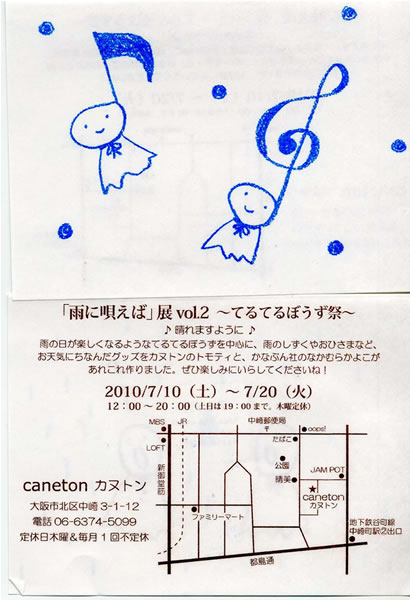 「雨に唄えば」展 vol.2 ～てるてるぼうず祭～
♪ 晴れますように ♪
雨の日が楽しくなるようなてるてるぼうずを中心に、雨のしずくやおひさまなど、
お天気にちなんだグッズをカヌトンのトモティと、かなぶん社のなかむらかよこが
あれこれ作りました。ぜひ楽しみにいらしてくださいね！
2010/7/10（土）～ 7/20（火）
12：00～20：00（土日は19：00まで。木曜定休）
caneton カヌトン
大阪市北区中崎 3-1-12
電話 06-6374-5099
定休日木曜＆毎月1回不定休
MBS
JR
中崎郵便局
oops!
たばこ
LOFT
公園
JAM POT
新御堂筋
晴美
caneton
カヌトン
ファミリーマート
地下鉄谷町線
中崎町駅2出口
都島通